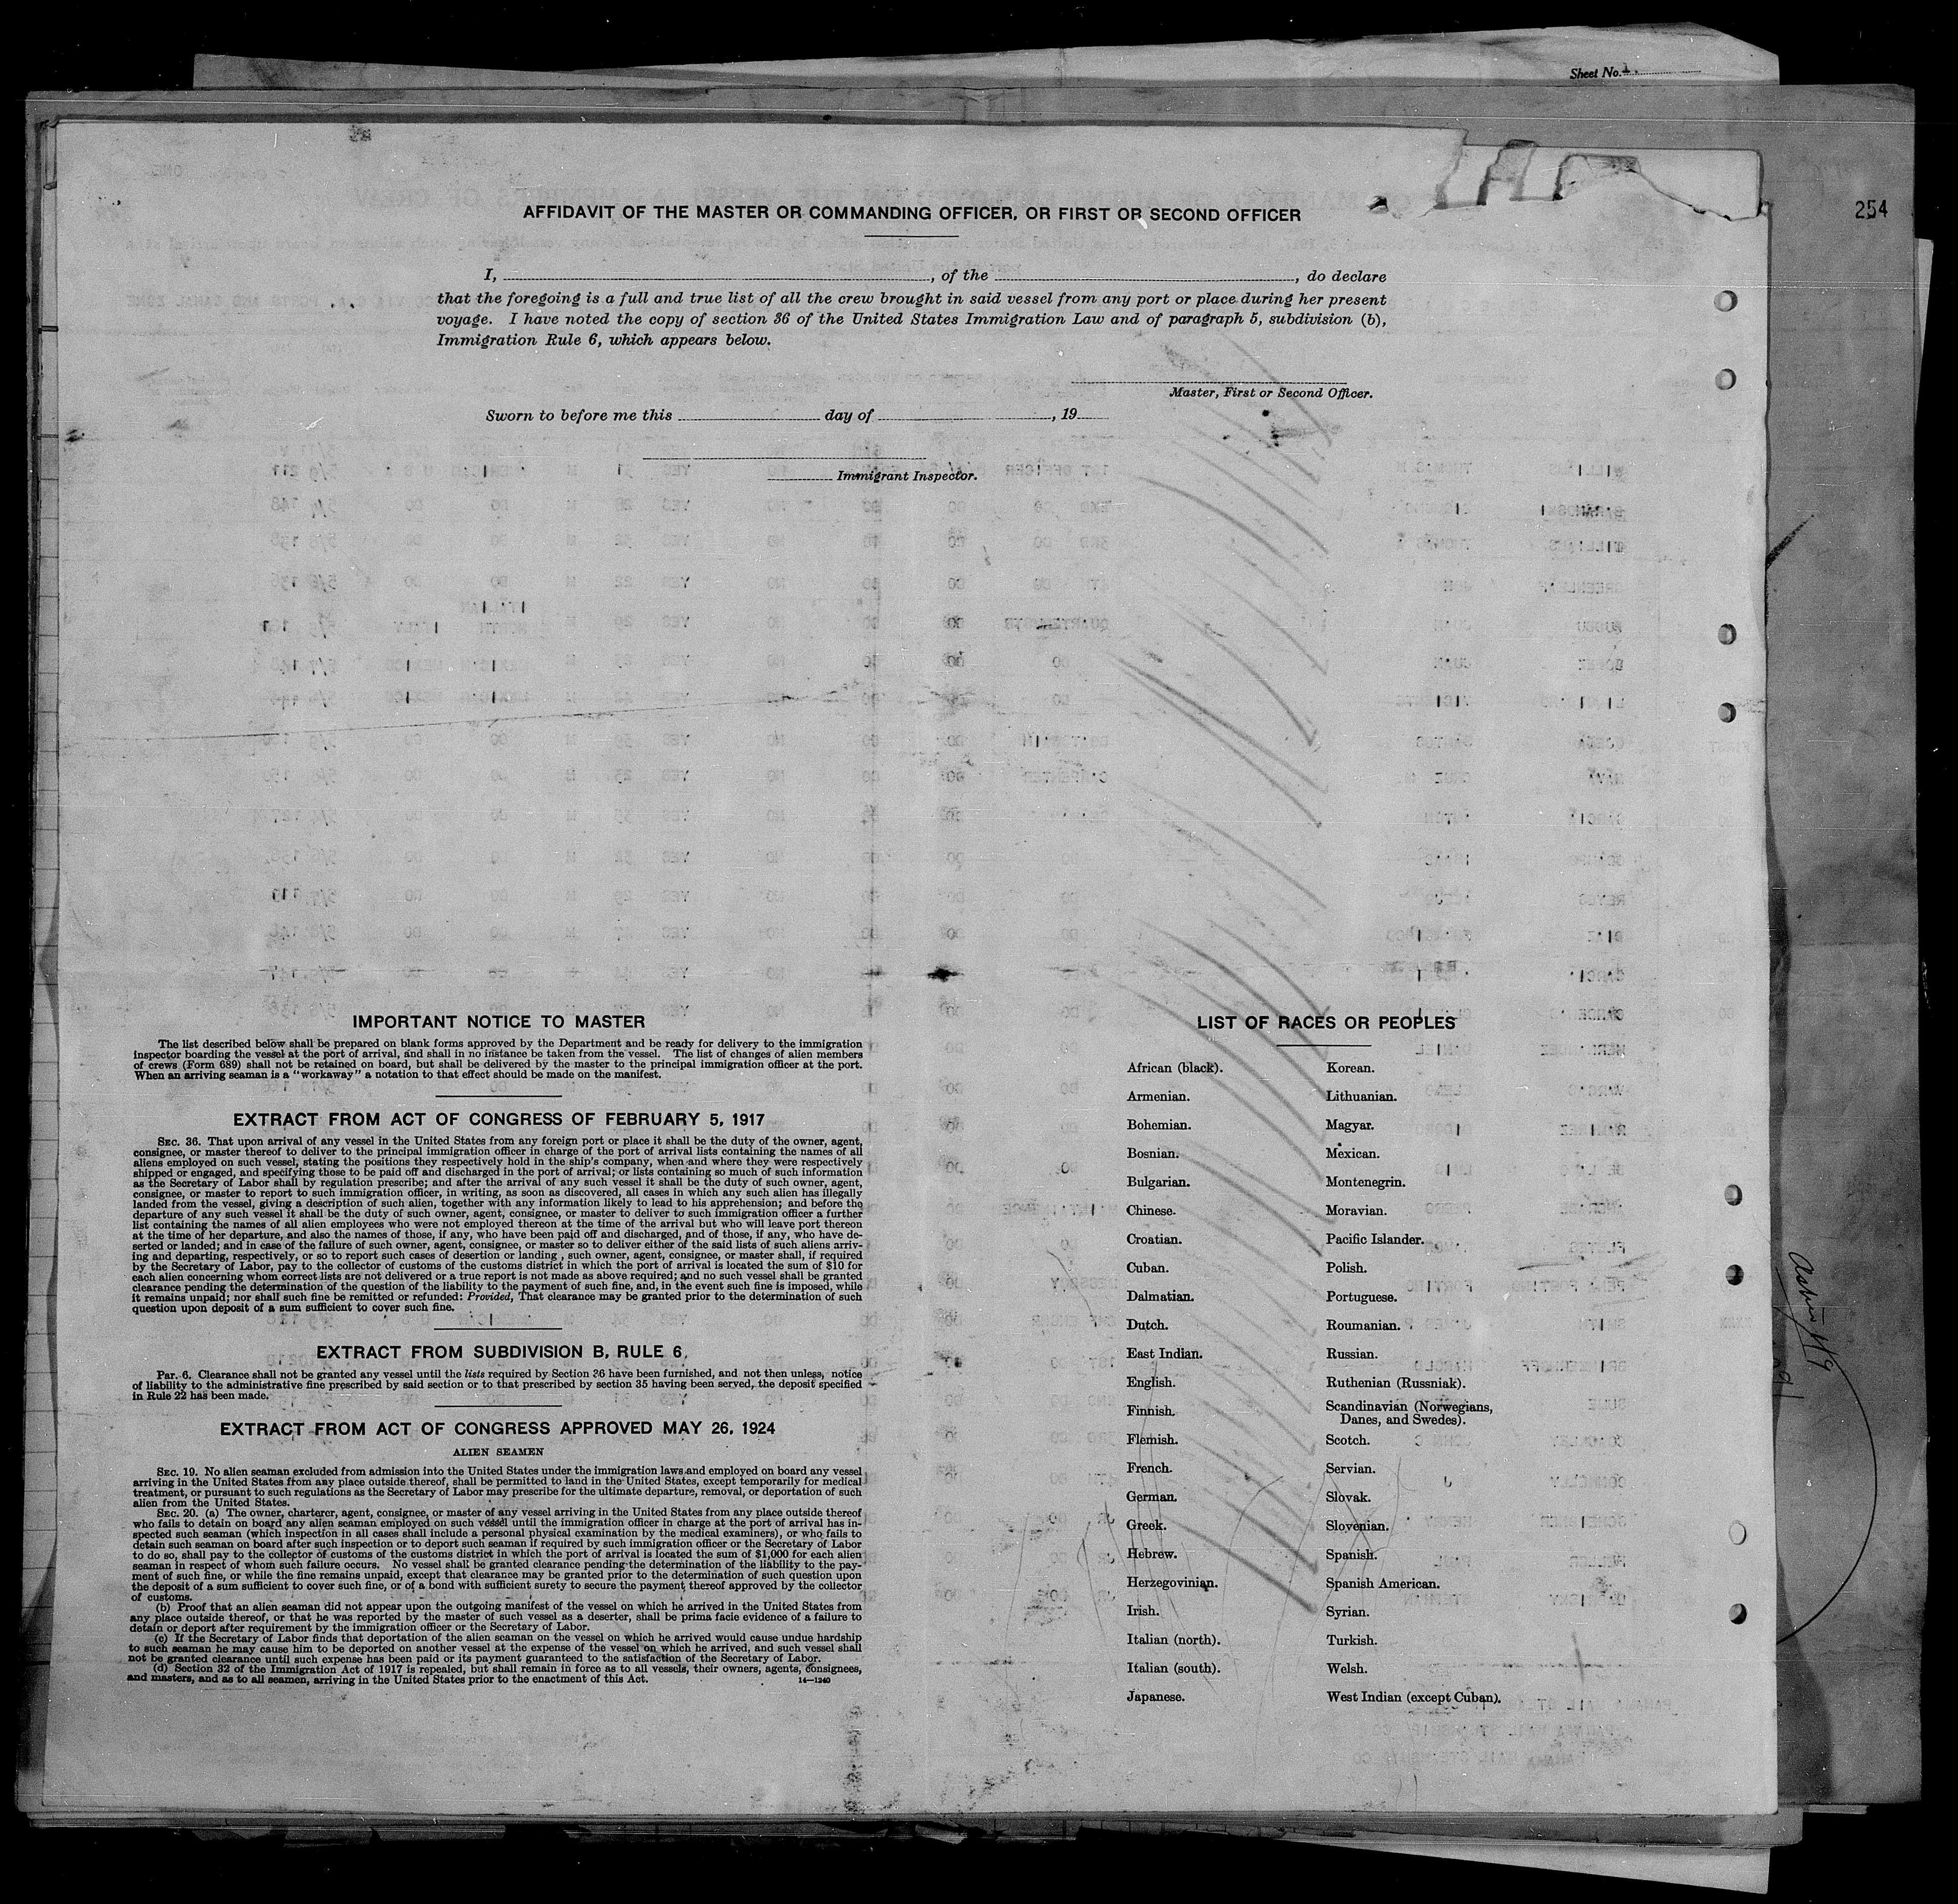 Sheet No. 1.
254
AFFIDAVIT OF THE MASTER OR COMMANDING OFFICER, OR FIRST OR SECOND OFFICER
I, , of the , do declare
that the foregoing is a full and true list of all the crew brought in said vessel from any port or place during her present
voyage. I have noted the copy of section 36 of the United States Immigration Law and of paragraph 5, subdivision (b),
Immigration Rule 6, which appears below.
Master, First or Second Officer.
Sworn to before me this day of , 19
Immigrant Inspector.
IMPORTANT NOTICE TO MASTER
The list described below shall be prepared on blank forms approved by the Department and be ready for delivery to the immigration
inspector boarding the vessel at the port of arrival, and shall in no instance be taken from the vessel. The list of changes of alien members
of crews (Form 689) shall not be retained on board, but shall be delivered by the master to the principal immigration officer at the port.
When an arriving seaman is a "workaway" a notation to that effect should be made on the manifest.
EXTRACT FROM ACT OF CONGRESS OF FEBRUARY 5, 1917
SEC. 36. That upon arrival of any vessel in the United States from any foreign port or place it shall be the duty of the owner, agent,
consignee, or master thereof to deliver to the principal immigration officer in charge of the port of arrival lists containing the names of all
aliens employed on such vessel, stating the positions they respectively hold in the ship's company, when and where they were respectively
shipped or engaged, and specifying those to be paid off and discharged in the port of arrival; or lists containing so much of such information
as the Secretary of Labor shall by regulation prescribe; and after the arrival of any such vessel it shall be the duty of such owner, agent,
consignee, or master to report to such immigration officer, in writing, as soon as discovered, all cases in which any such alien has illegally
landed from the vessel, giving a description of such alien, together with any information likely to lead to his apprehension; and before the
departure of any such vessel it shall be the duty of such owner, agent, consignee, or master to deliver to such immigration officer a further
list containing the names of all alien employees who were not employed thereon at the time of the arrival but who will leave port thereon
at the time of her departure, and also the names of those, if any, who have been paid off and discharged, and of those, if any, who have de-
serted or landed; and in case of the failure of such owner, agent, consignee, or master so to deliver either of the said lists of such aliens arriv-
ing and departing, respectively, or so to report such cases of desertion or landing , such owner, agent, consignee, or master shall, if required
by the Secretary of Labor, pay to the collector of customs of the customs district in which the port of arrival is located the sum of $10 for
each alien concerning whom correct lists are not delivered or a true report is not made as above required; and no such vessel shall be granted
clearance pending the determination of the question of the liability to the payment of such fine, and, in the event such fine is imposed, while
it remains unpaid; nor shall such fine be remitted or refunded: Provided, That clearance may be granted prior to the determination of such
question upon deposit of a sum sufficient to cover such fine.
EXTRACT FROM SUBDIVISION B, RULE 6.
Par. 6. Clearance shall not be granted any vessel until the lists required by Section 36 have been furnished, and not then unless, notice
of liability to the administrative fine prescribed by said section or to that prescribed by section 35 having been served, the deposit specified
in Rule 22 has been made.
EXTRACT FROM ACT OF CONGRESS APPROVED MAY 26, 1924
ALIEN SEAMEN
SEC. 19. No alien seaman excluded from admission into the United States under the immigration laws and employed on board any vessel
arriving in the United States from any place outside thereof, shall be permitted to land in the United States, except temporarily for medical
treatment, or pursuant to such regulations as the Secretary of Labor may prescribe for the ultimate departure, removal, or deportation of such
alien from the United States.
SEC. 20. (a) The owner, charterer, agent, consignee, or master of any vessel arriving in the United States from any place outside thereof
who fails to detain on board any alien seaman employed on such vessel until the immigration officer in charge at the port of arrival has in-
spected such seaman (which inspection in all cases shall include a personal physical examination by the medical examiners), or who fails to
detain such seaman on board after such inspection or to deport such seaman if required by such immigration officer or the Secretary of Labor
to do so, shall pay to the collector of customs of the customs district in which the port of arrival is located the sum of $1,000 for each alien
seaman in respect of whom such failure occurs. No vessel shall be granted clearance pending the determination of the liability to the pay-
ment of such fine, or while the fine remains unpaid, except that clearance may be granted prior to the determination of such question upon
the deposit of a sum sufficient to cover such fine, or of a bond with sufficient surety to secure the payment thereof approved by the collector
of customs.
(b) Proof that an alien seaman did not appear upon the outgoing manifest of the vessel on which he arrived in the United States from
any place outside thereof, or that he was reported by the master of such vessel as a deserter, shall be prima facie evidence of a failure to
detain or deport after requirement by the immigration officer or the Secretary of Labor.
(c) If the Secretary of Labor finds that deportation of the alien seaman on the vessel on which he arrived would cause undue hardship
to such seaman he may cause him to be deported on another vessel at the expense of the vessel on which he arrived, and such vessel shall
not be granted clearance until such expense has been paid or its payment guaranteed to the satisfaction of the Secretary of Labor.
(d) Section 32 of the Immigration Act of 1917 is repealed, but shall remain in force as to all vessels, their owners, agents, consignees,
and masters, and as to all seamen, arriving in the United States prior to the enactment of this Act.
14—1240
LIST OF RACES OR PEOPLES
African (black).
Armenian.
Bohemian.
Bosnian.
Bulgarian.
Chinese.
Croatian.
Cuban.
Dalmatian.
Dutch.
East Indian.
English.
Finnish.
Flemish.
French.
German.
Greek.
Hebrew.
Herzegovinian.
Irish.
Italian (north).
Italian (south).
Japanese.
Korean.
Lithuanian.
Magyar.
Mexican.
Montenegrin.
Moravian.
Pacific Islander.
Polish.
Portuguese.
Roumanian.
Russian.
Ruthenian (Russniak).
Scandinavian (Norwegians,
Danes, and Swedes).
Scotch.
Servian.
Slovak.
Slovenian.
Spanish.
Spanish American.
Syrian.
Turkish.
Welsh.
West Indian (except Cuban).